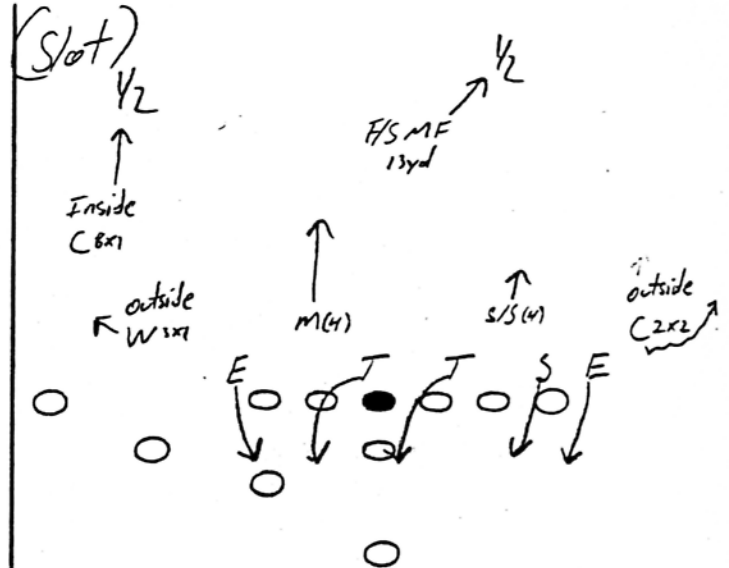 (Slot)
1/2
1/2
F/S MF
13yd
Inside
C 8x1
outside
W 3x1
M(4)
S/S(4)
outside
C 2x2
E
T
T
S
E